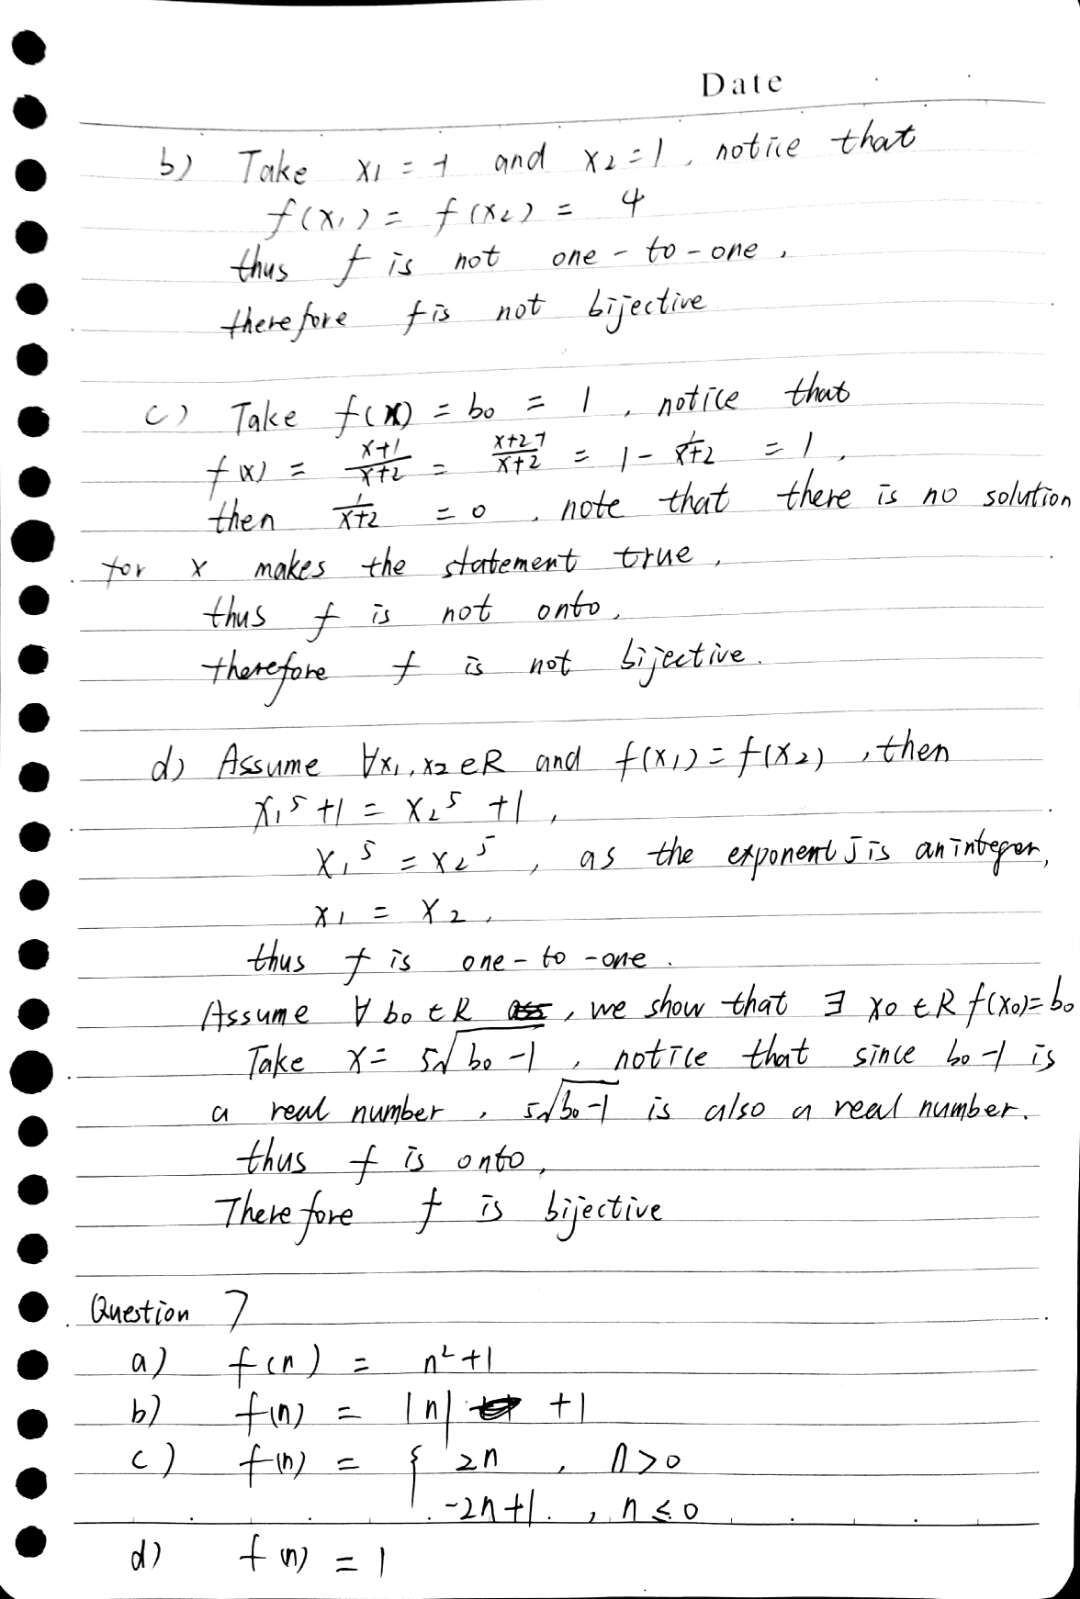 Date
b) Take x₁ = -1 and x₂ = 1, notice that
f(x₁) = f(x₂) = 4
thus f is not one-to-one,
therefore f is not bijective
c) Take f(x) = b₀ = 1, notice that
f(x) = (x+1)/(x+2) = (x+2-1)/(x+2) = 1 - 1/(x+2) = 1,
then 1/(x+2) = 0, note that there is no solution
for x makes the statement true,
thus f is not onto,
therefore f is not bijective.
d) Assume ∀x₁,x₂∈R and f(x₁) = f(x₂), then
x₁⁵+1 = x₂⁵+1,
x₁⁵ = x₂⁵, as the exponent 5 is an integer,
x₁ = x₂,
thus f is one-to-one.
Assume ∀ b₀∈R, we show that ∃ x₀∈R f(x₀)=b₀
Take x = ⁵√(b₀-1), notice that since b₀-1 is
a real number, ⁵√(b₀-1) is also a real number.
thus f is onto,
Therefore f is bijective
Question 7
a) f(n) = n²+1
b) f(n) = |n| +1
c) f(n) = { 2n, n>0
-2n+1, n≤0
d) f(n) = 1